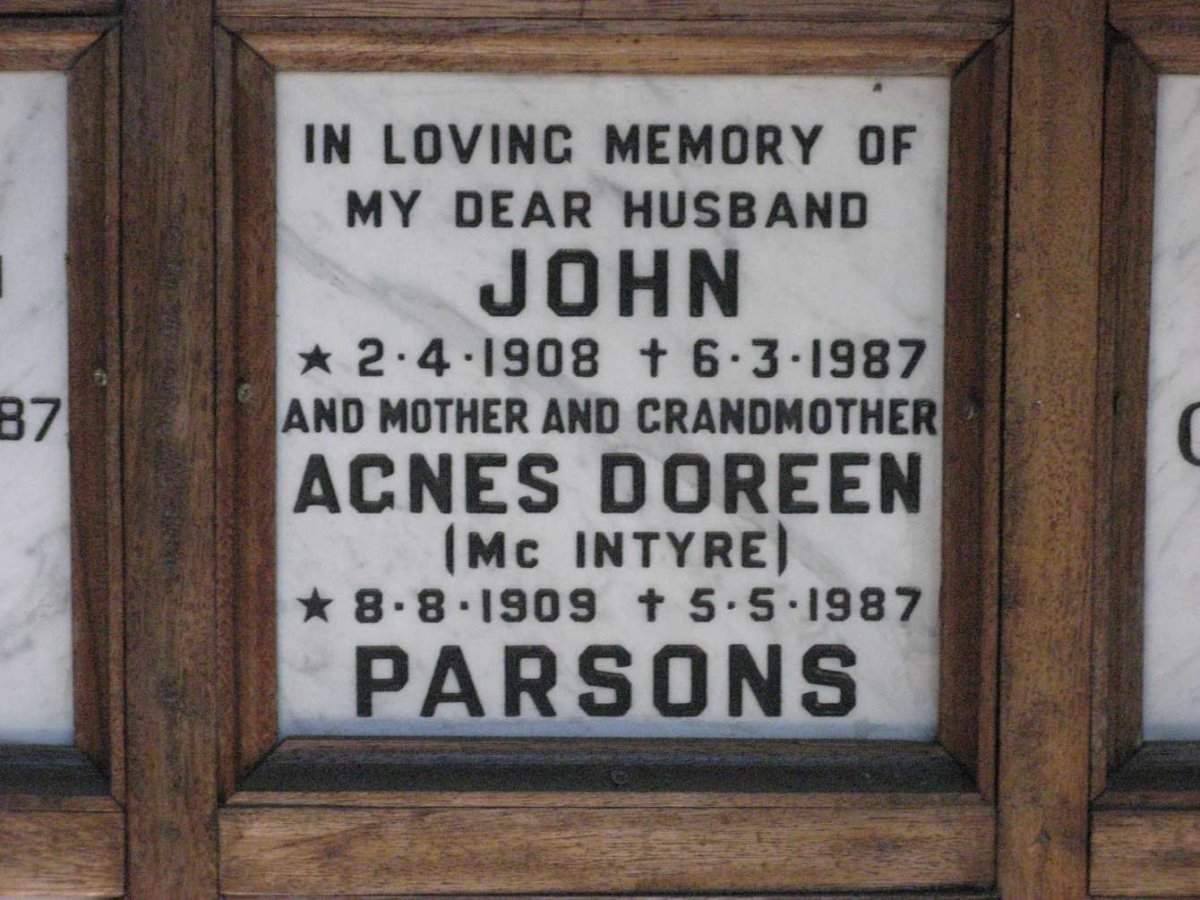 IN LOVING MEMORY OF
MY DEAR HUSBAND
JOHN
★ 2·4·1908 ✝ 6·3·1987
AND MOTHER AND GRANDMOTHER
AGNES DOREEN
(Mc INTYRE)
★ 8·8·1909 ✝ 5·5·1987
PARSONS
87